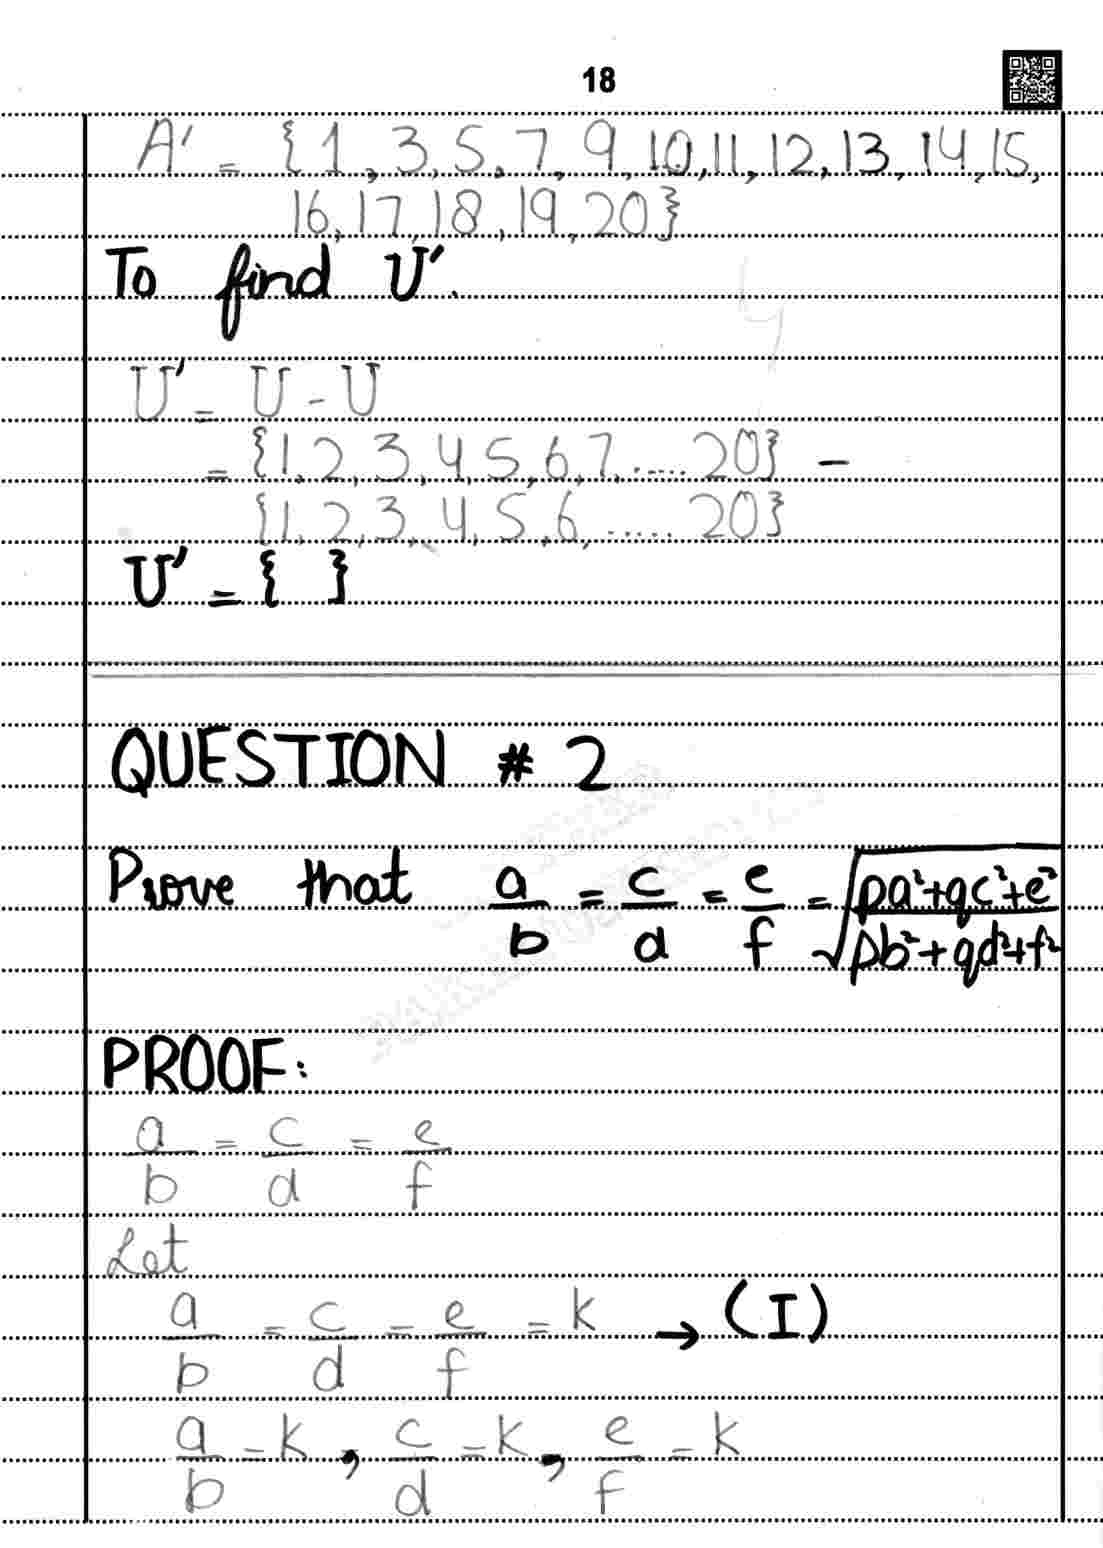 18
A' = {1, 3, 5, 7, 9, 10, 11, 12, 13, 14, 15,
16, 17, 18, 19, 20}
To find U'.
U' = U - U
= {1, 2, 3, 4, 5, 6, 7, ..... 20} -
{1, 2, 3, 4, 5, 6, ..... 20}
U' = { }
QUESTION # 2
Prove that a/b = c/d = e/f = √(pa²+qc²+e²/pb²+qd²+f²)
PROOF:
a/b = c/d = e/f
Let
a/b = c/d = e/f = k → (I)
a/b = k, c/d = k, e/f = k